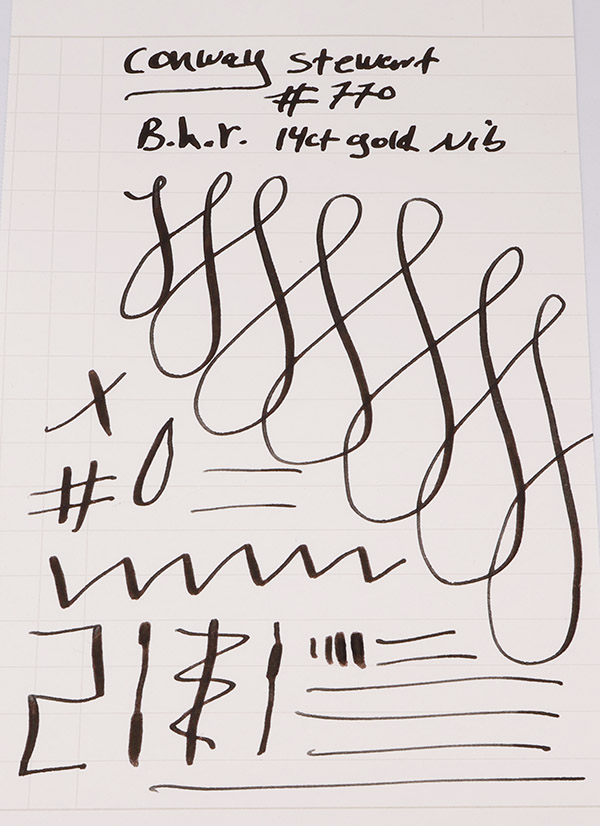 Conway Stewart
# 770
B.h.r. 14ct gold Nib